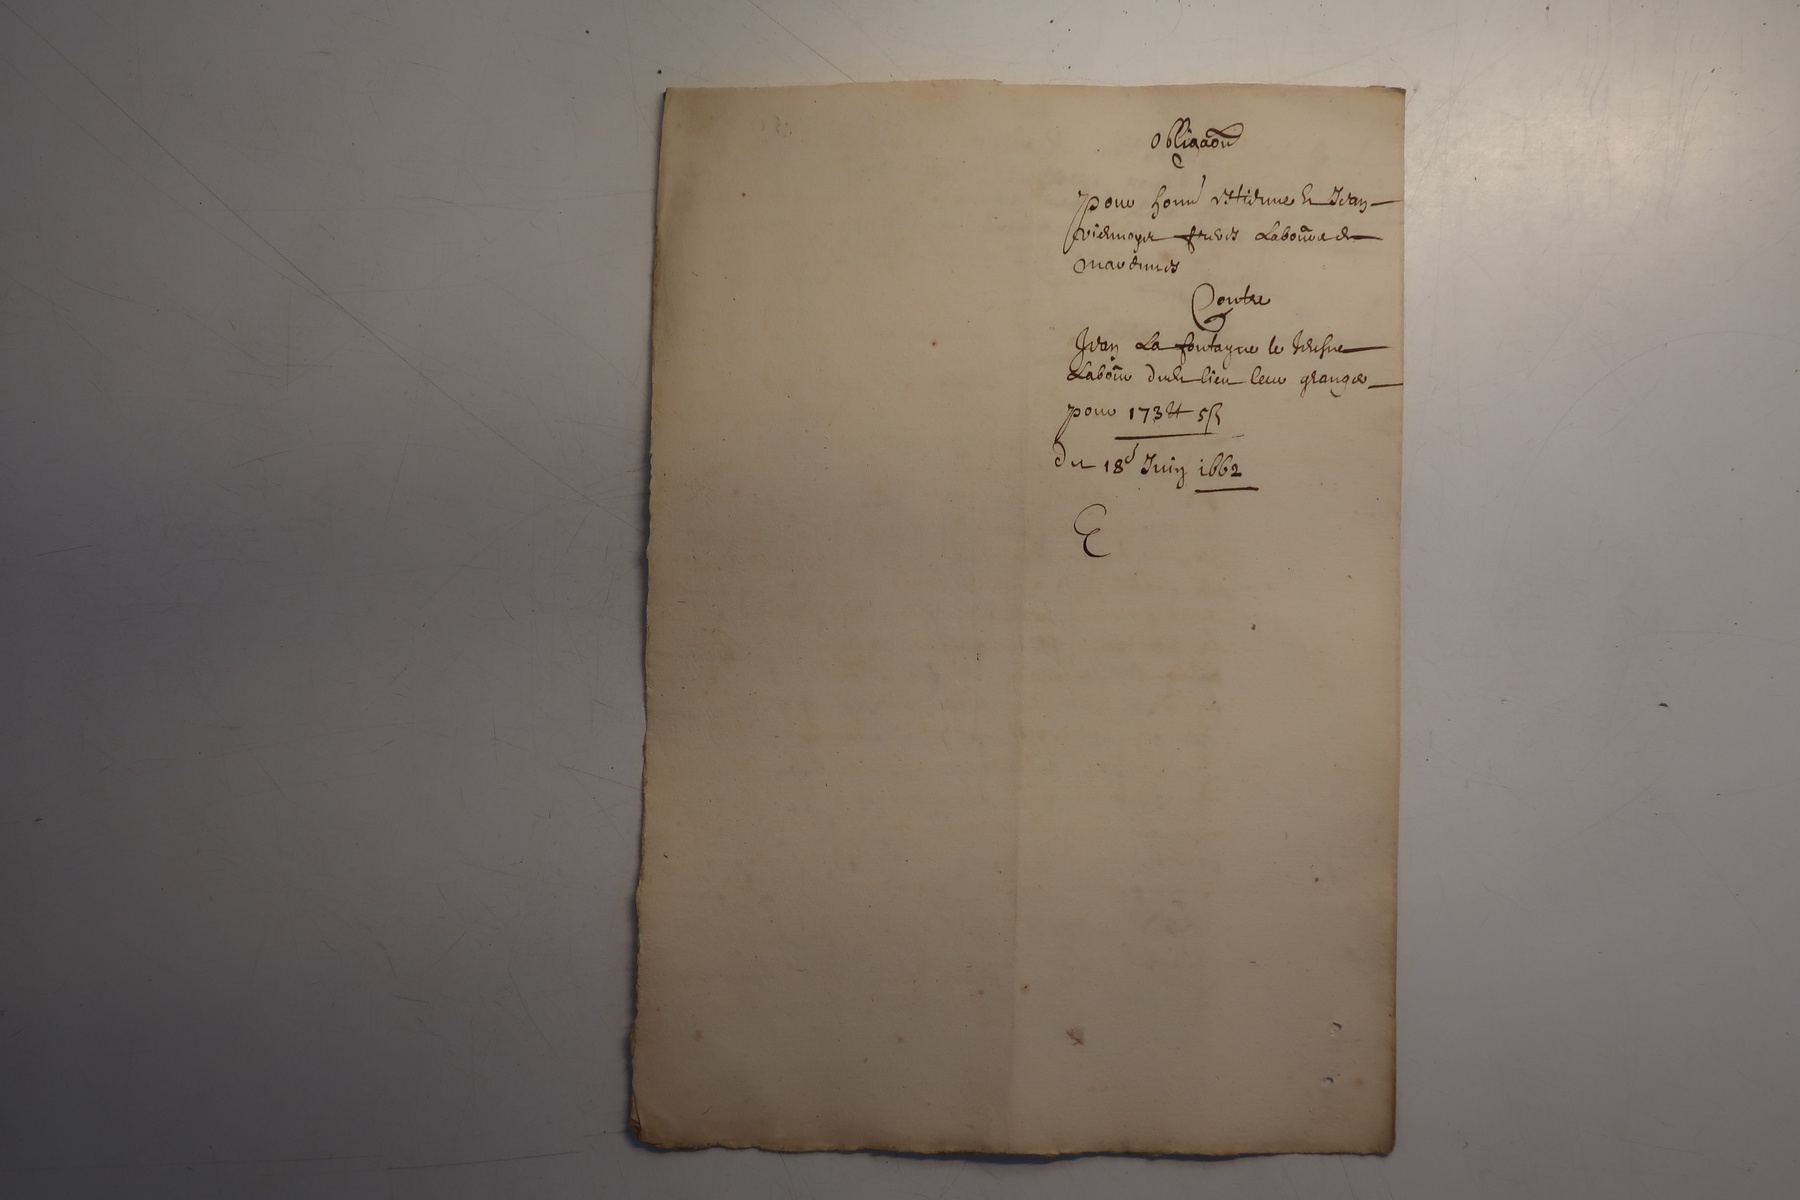 Obligaõn
pour honn Estienne et Jean
vielmoyet freres Laboure de
Contre
Jean La fontayne le
Laboũr dudt lieu leur granger
pour 173 lt 5 ß
du 18e Juin 1662